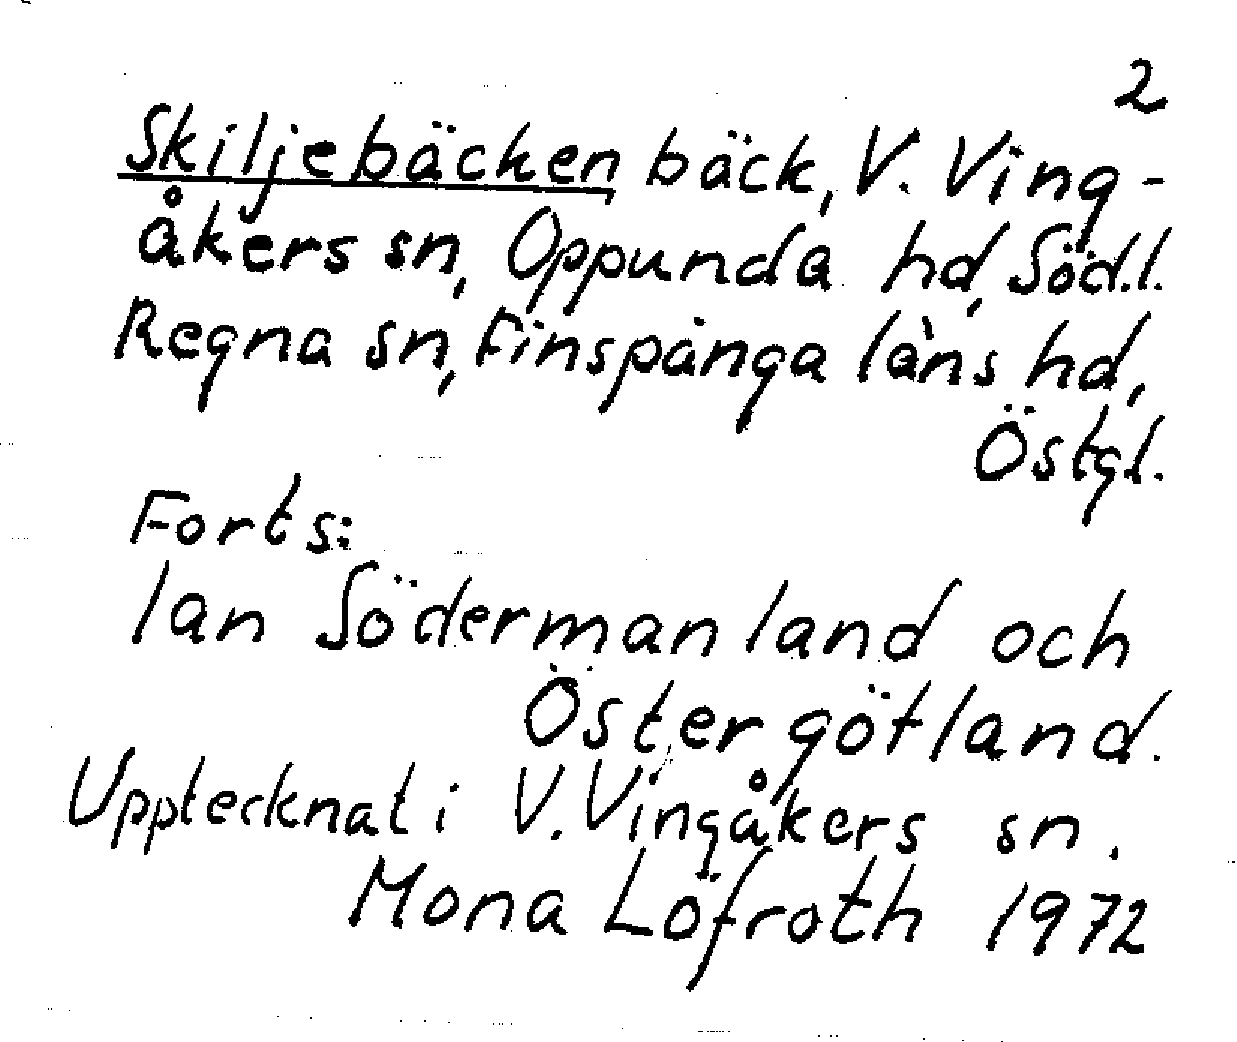 2
Skiljebäcken bäck, V. Ving-
åkers sn, Oppunda hd, Söd.l.
Regna sn, Finspånga läns hd,
Östgl.
Forts:
lan Södermanland och
Östergötland.
Upptecknat i V. Vingåkers sn.
Mona Löfroth 1972